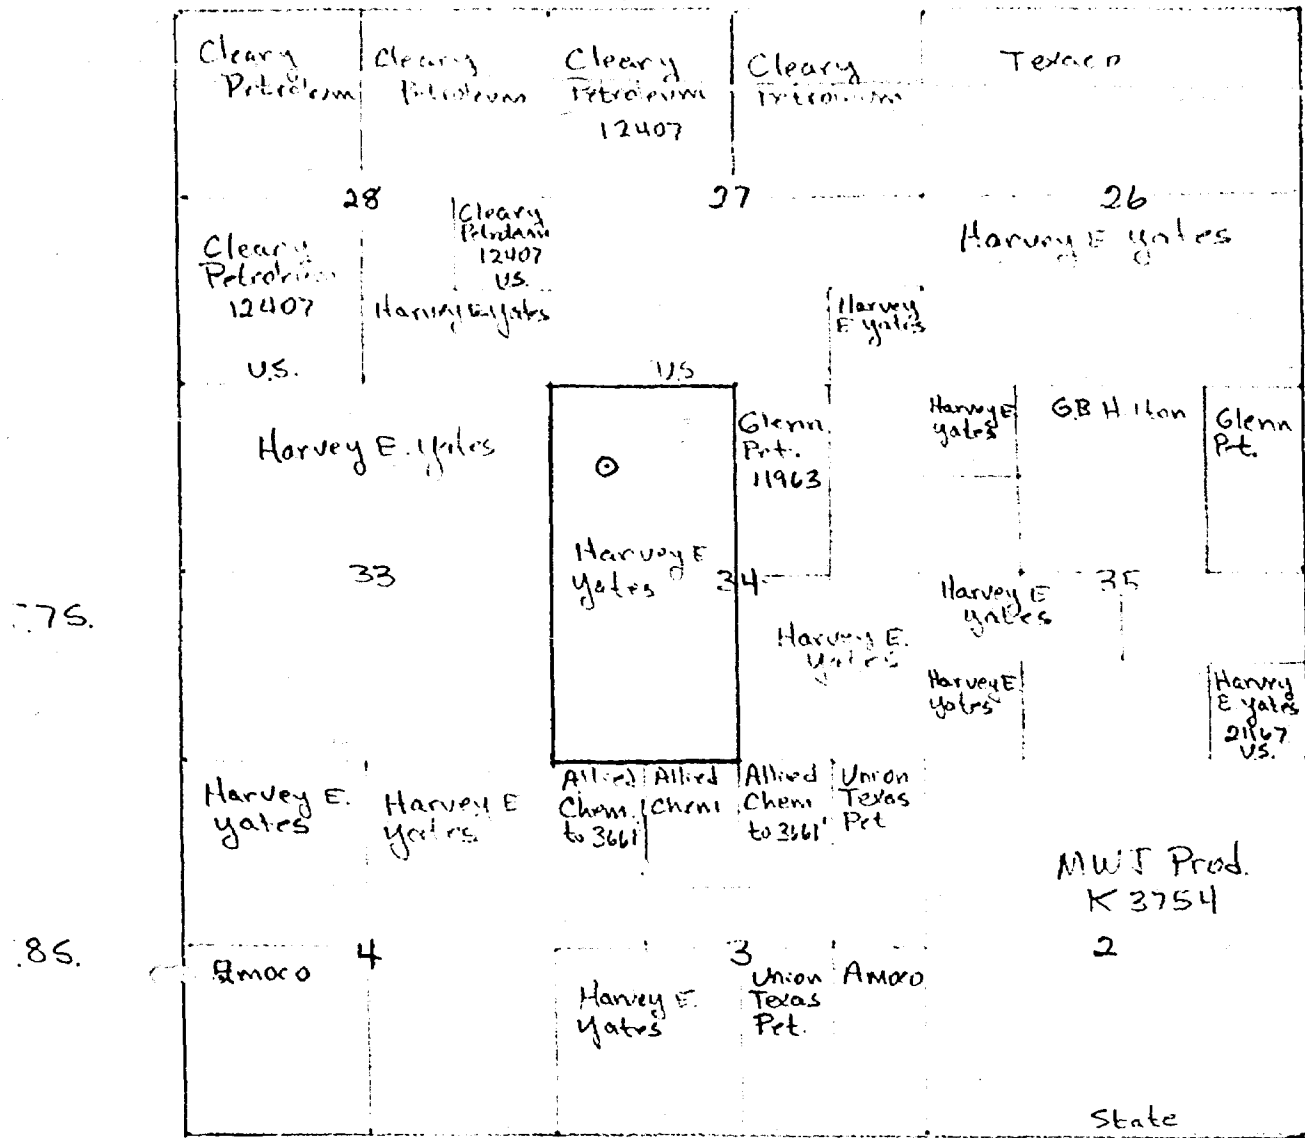 Cleary
Petroleum
Cleary
Petroleum
Cleary
Petroleum
12407
Cleary
Petroleum
Texaco
28
27
26
Cleary
Petroleum
12407
U.S.
Cleary
Petroleum
12407
U.S.
Harvey E. Yates
Harvey E Yates
Harvey
E Yates
U.S.
Harvey E. Yates
Glenn
Pet.
11963
Harvey E
Yates
G.B. Hilton
Glenn
Pet.
33
Harvey E
Yates
34
Harvey E.
Yates
Harvey E
Yates
35
7S.
Harvey E
Yates
Harvey
E Yates
21167
U.S.
Harvey E.
Yates
Harvey E
Yates
Allied
Chem.
to 3661'
Allied
Chem
Allied
Chem
to 3661'
Union
Texas
Pet
MWJ Prod.
K 3754
8S.
4
3
2
Amoco
Harvey E.
Yates
Union
Texas
Pet.
Amoco
State